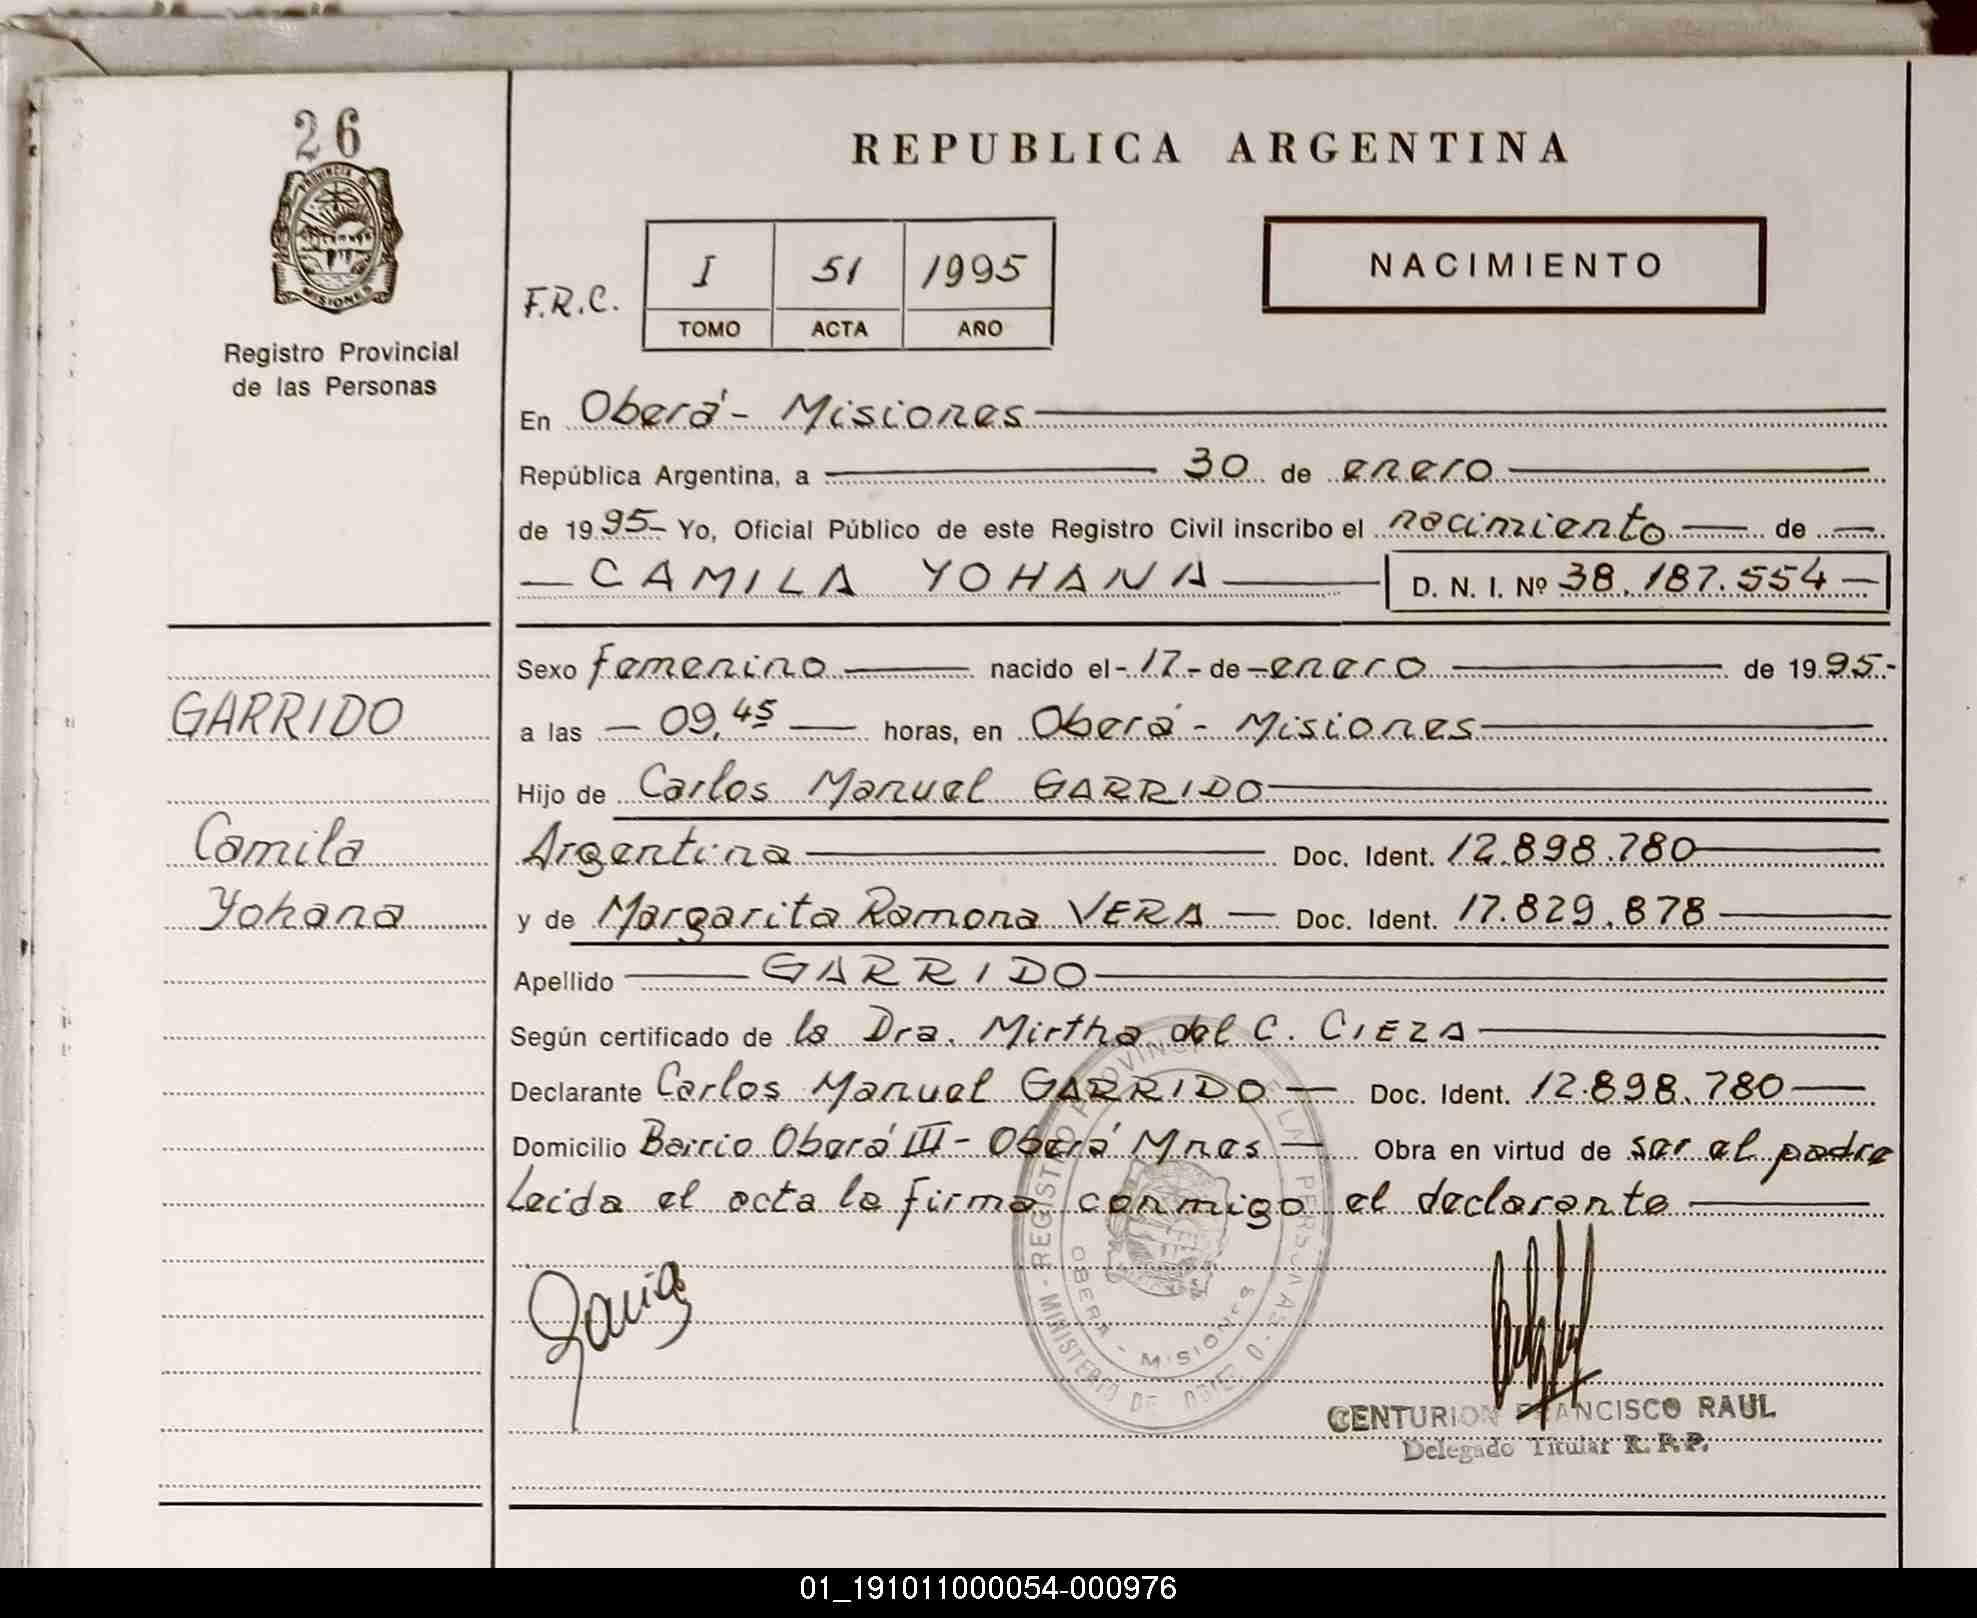 26
PROVINCIA DE
MISIONES
Registro Provincial
de las Personas
REPUBLICA ARGENTINA
F.R.C.
I 51 1995
TOMO ACTA AÑO
NACIMIENTO
En Oberá - Misiones
República Argentina, a 30 de enero
de 1995- Yo, Oficial Público de este Registro Civil inscribo el nacimiento de
CAMILA YOHANA D. N. I. Nº 38.187.554
Sexo Femenino nacido el - 17 - de - enero de 1995.-
GARRIDO
a las - 09,45 horas, en Oberá - Misiones
Hijo de Carlos Manuel GARRIDO
Camila
Argentina Doc. Ident. 12.898.780
Yohana
y de Margarita Ramona VERA - Doc. Ident. 17.829.878
Apellido GARRIDO
Según certificado de la Dra. Mirtha del C. CIEZA
Declarante Carlos Manuel GARRIDO - Doc. Ident. 12.898.780
Domicilio Barrio Oberá III - Oberá Mnes - Obra en virtud de ser el padre
Leida el acta la firma conmigo el declarante
REGISTRO PROVINCIAL DE LAS PERSONAS
OBERA - MISIONES
MINISTERIO DE
CENTURION FRANCISCO RAUL
Delegado Titular R. P. P.
01_191011000054-000976